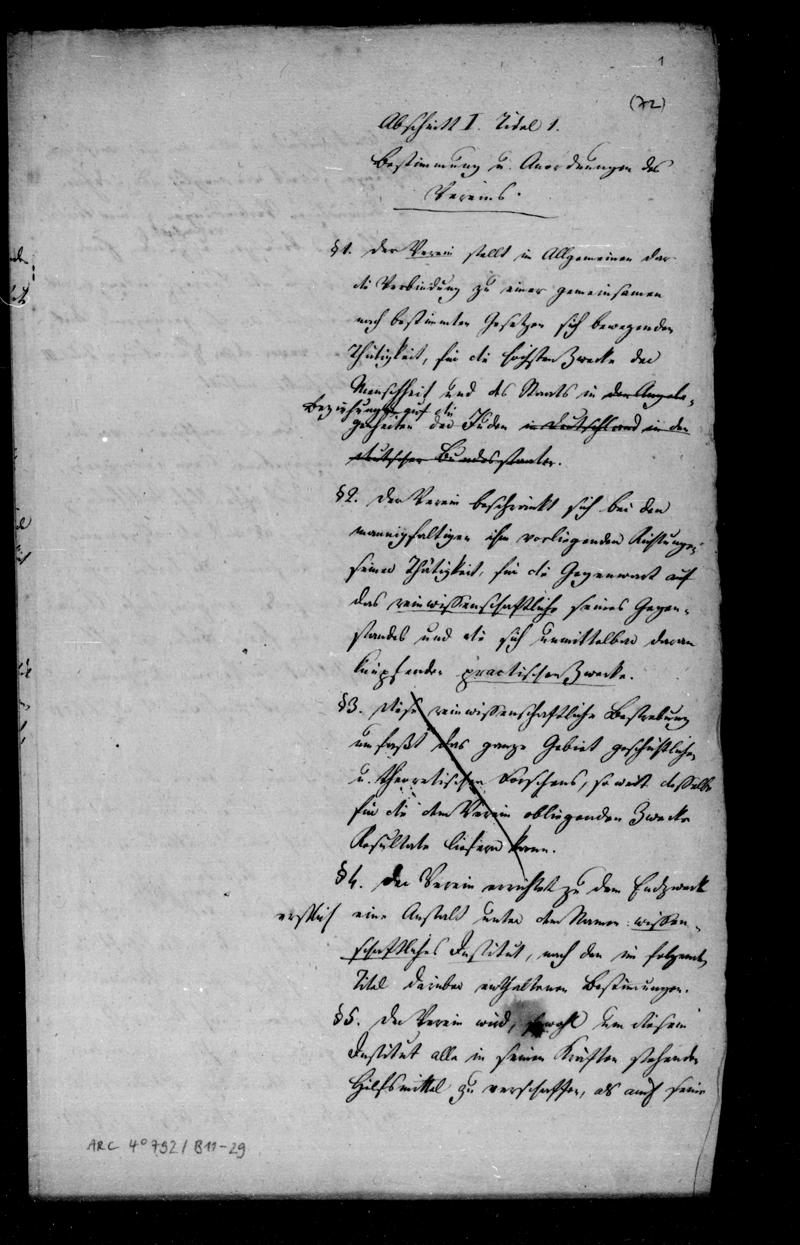 1
(72)
Abschnitt I. Titel 1.
Bestimmung u. Anordnungen des
Vereins.
§1. Der Verein stellt im Allgemeinen dar
die Verbindung zu einer gemeinsamen
nach bestimmten Gesetzen sich bewegenden
Thätigkeit, für die höchsten Zwecke der
Menschheit und des Staats in den Angele-
Beziehung auf die
genheiten der Juden in Deutschland in den
deutschen Bundesstaaten.
§2. Der Verein beschränkt sich bei den
mannigfaltigen ihm vorliegenden Richtungen
seiner Thätigkeit, für die Gegenwart auf
das reinwissenschaftliche seines Gegen-
standes und die sich unmittelbar daran
knüpfenden practischen Zwecke.
§3. Diese reinwissenschaftliche Bestrebung
umfaßt das ganze Gebiet geschichtlichen
u. theoretischen Forschens, so weit dasselbe
für die dem Verein obliegenden Zwecke
Resultate liefern kann.
§4. Der Verein errichtet zu dem Endzweck
erstlich eine Anstalt unter dem Namen: wissen-
schaftliches Institut, nach den im folgenden
Titel darüber enthaltenen Bestimmungen.
§5. Der Verein wird, sowohl um diesem
Institut alle in seinen Kräften stehenden
Hilfsmittel zu verschaffen, als auch seine
ARC 4° 792/B11-29